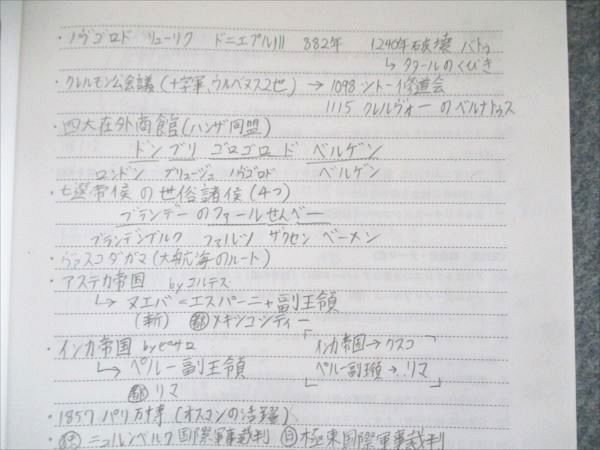 ・ノヴゴロド リューリク ドニエプル川 882年 1240年破壊 バトゥ
↳タタールのくびき
・クレルモン公会議(十字軍、ウルバヌス2世)→1098 シトー修道会
1115 クレルヴォーのベルナドゥス
・四大在外商館(ハンザ同盟)
ドン ブリ ゴロゴロド ベルゲン
ロンドン ブリュージュ ノヴゴロド ベルゲン
・七選帝侯の世俗諸侯(4つ)
ブランデーのファールせんべー
ブランデンブルク ファルツ ザクセン ベーメン
・ヴァスコダガマ(大航海のルート)
・アステカ帝国 by コルテス
↳ヌエバ=エスパーニャ副王領
(新) 都メキシコシティー
・インカ帝国 by ピサロ 「インカ帝国→クスコ
↳ペルー副王領 ペルー副王領→リマ」
都リマ
・1857 パリ万博(オスマンの活躍)
・ニュルンベルク国際軍事裁判 日極東国際軍事裁判